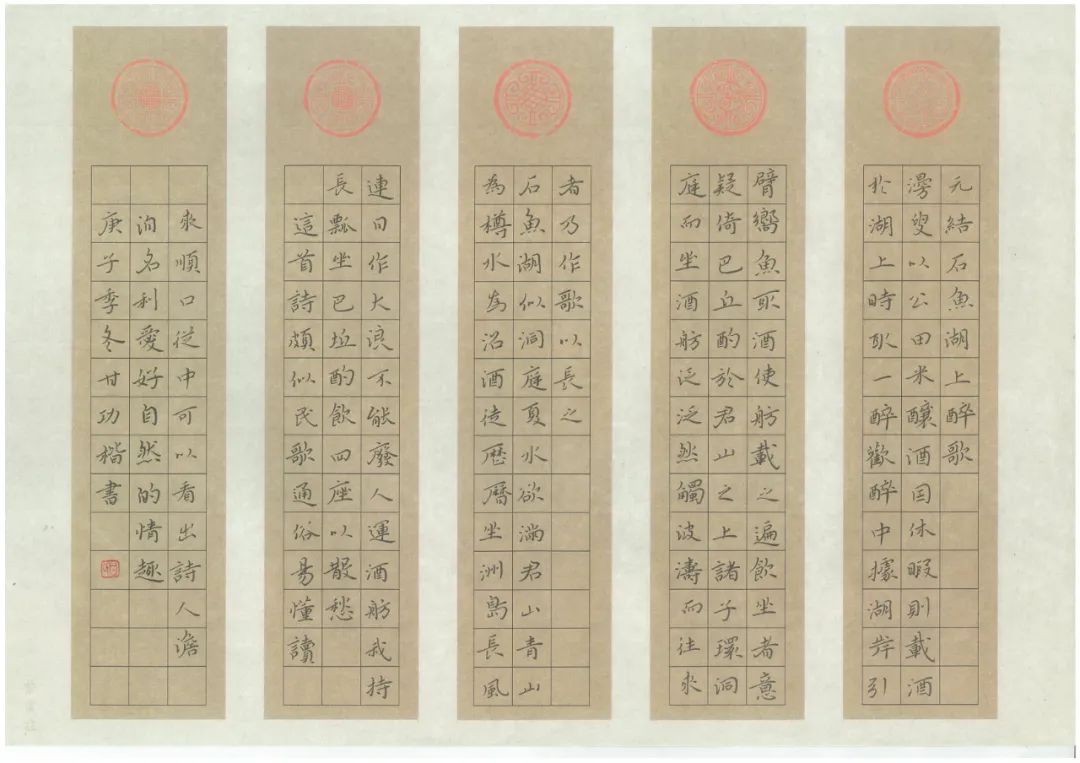 元結石魚湖上醉歌
漫叟以公田米釀酒因休暇則載酒
於湖上時取一醉歡醉中據湖岸引
臂嚮魚取酒使舫載之遍飲坐者意
疑倚巴丘酌於君山之上諸子環洞
庭而坐酒舫泛泛然觸波濤而往來
者乃作歌以長之
石魚湖似洞庭夏水欲滿君山青山
為樽水為沼酒徒厯曆坐洲島長風
連日作大浪不能廢人運酒舫我持
長瓢坐巴坵酌飲四座以散愁
這首詩頗似民歌通俗易懂讀
來順口從中可以看出詩人澹
泊名利愛好自然的情趣
庚子季冬甘功楷書